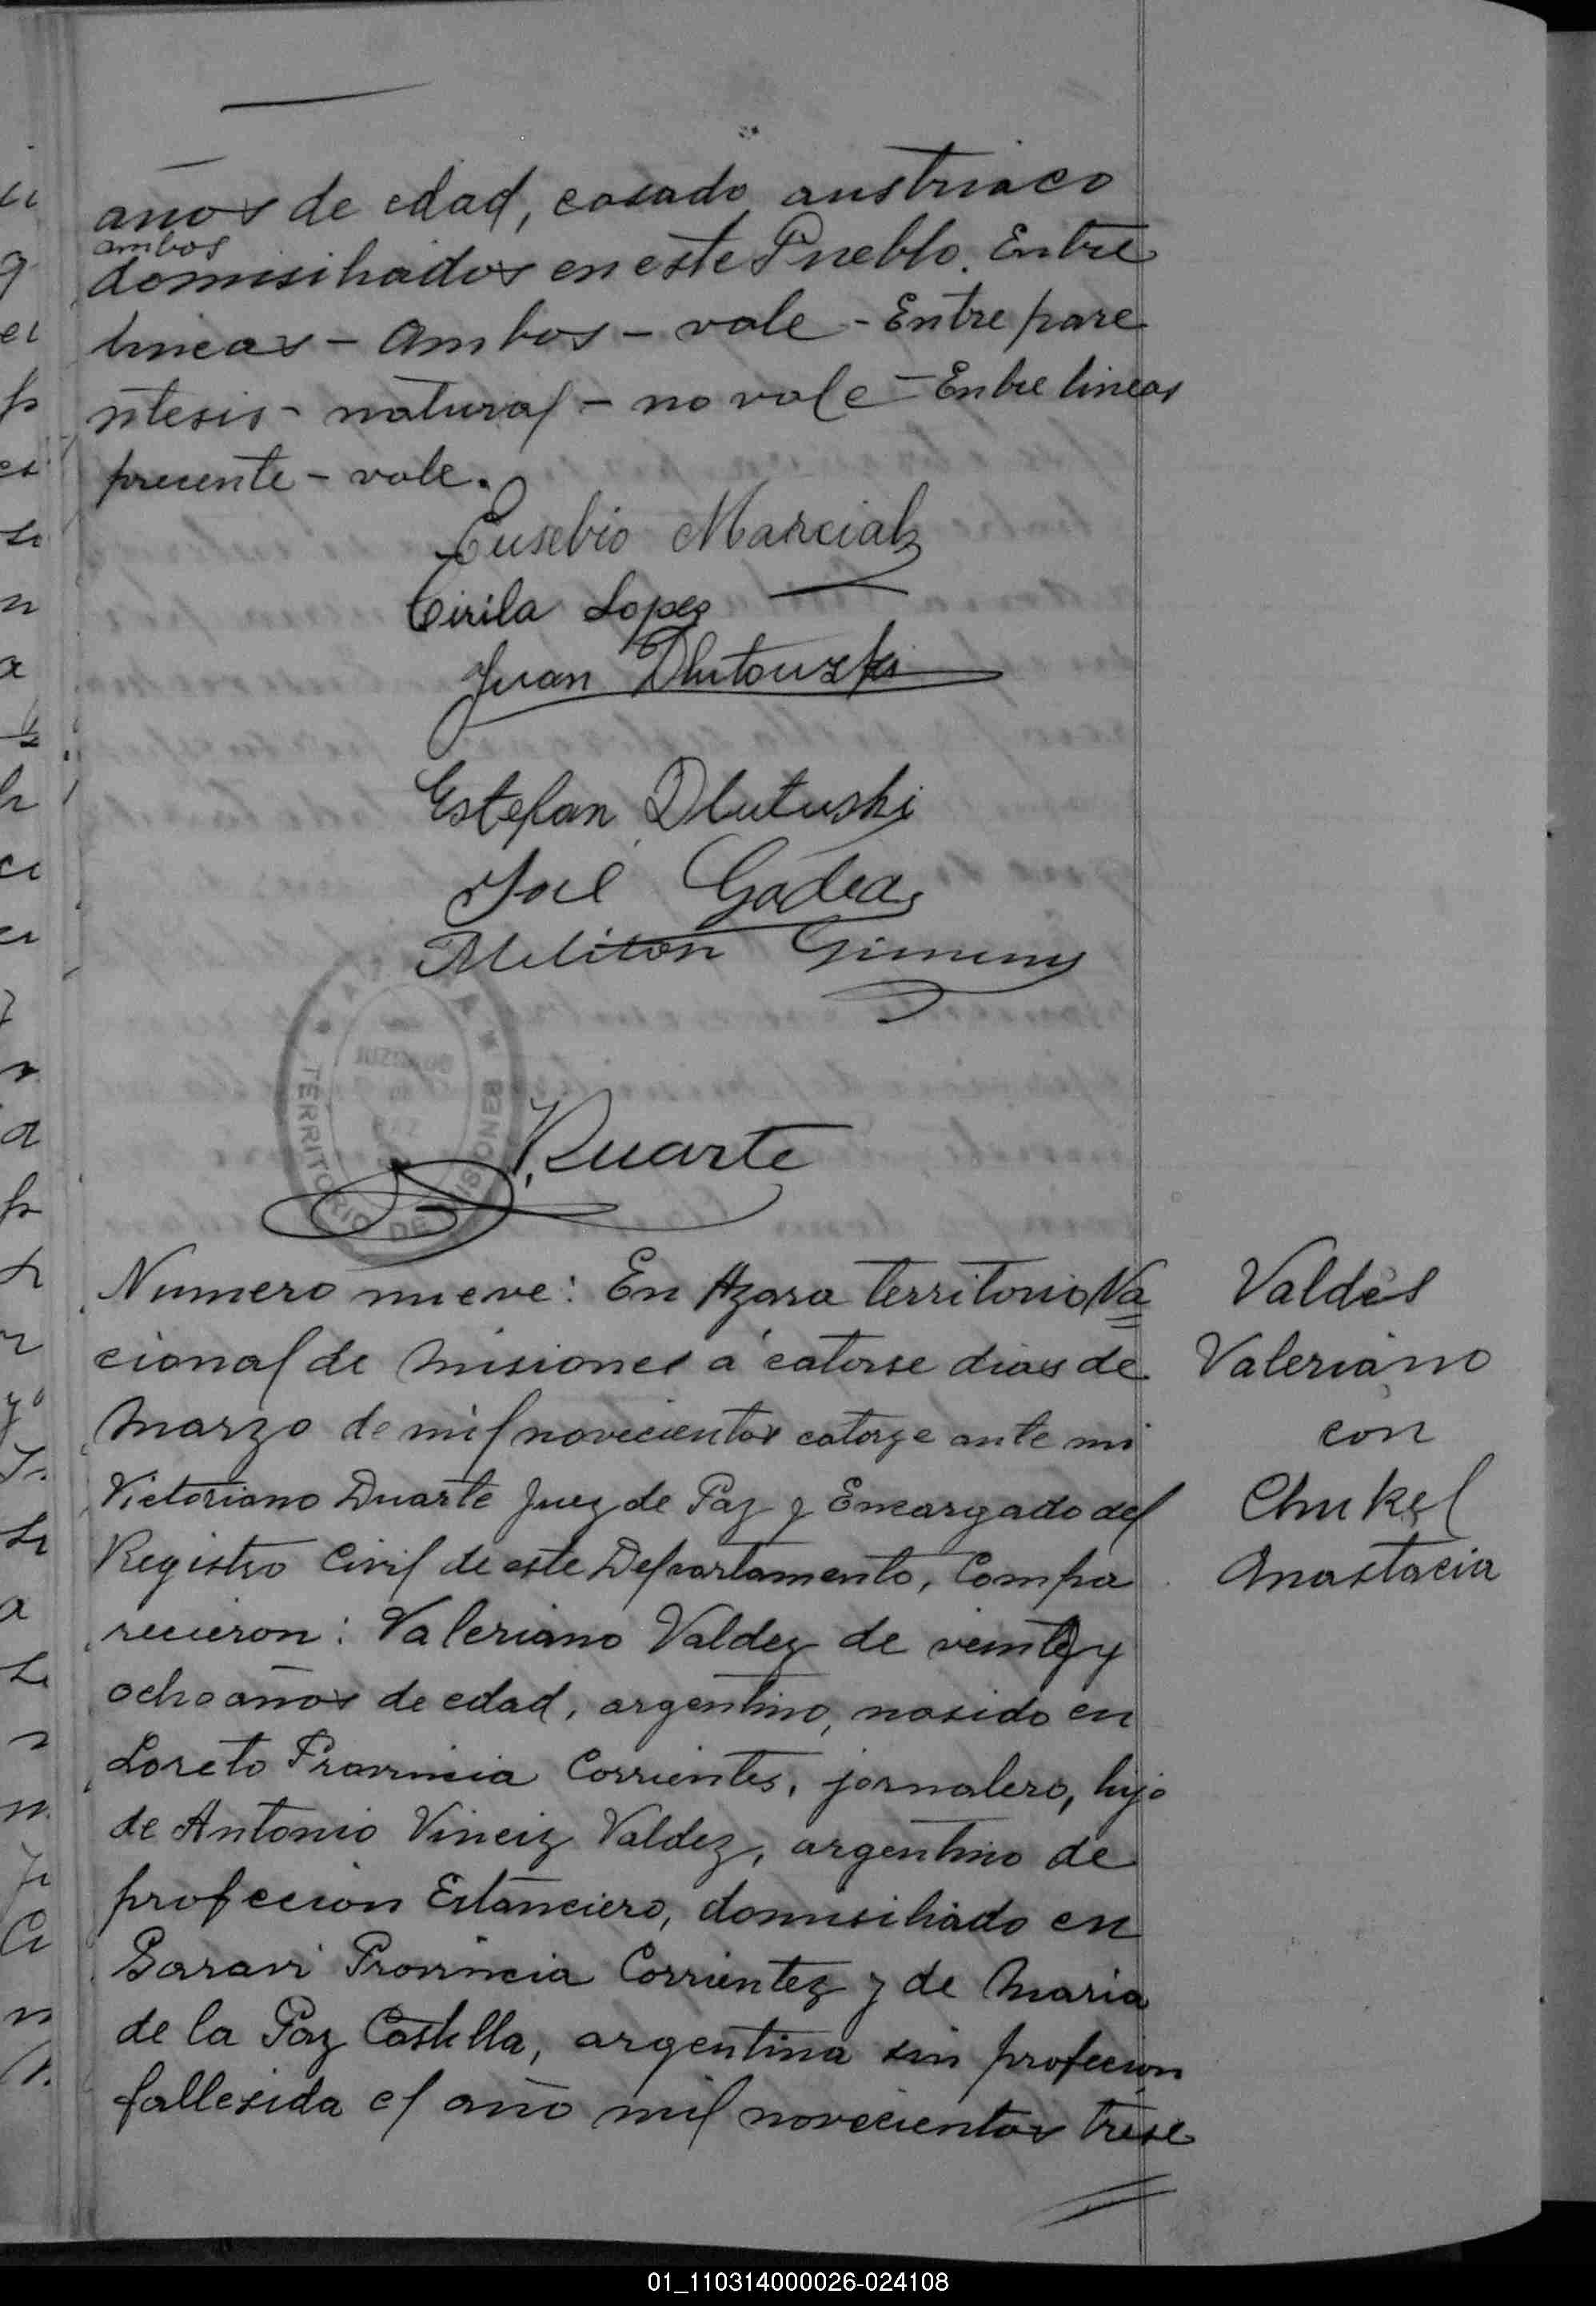 años de edad, casado austriaco
ambos
domisiliados en este Pueblo. Entre
lineas - ambos - vale - Entre pare
ntesis - natural - no vale - Entre lineas
precente - vale.
Eusebio Marcial
Cirila Lopez
Juan Dlutouski
Estefan Dlutuski
José Godea
Meliton Gimenez
JUZGADO
TERRITORIO DE MISIONES
V. Duarte
Numero nueve: En Azara territorio Na
cional de Misiones á catorse dias de
Marzo de mil novecientos catorze ante mi
Victoriano Duarte Juez de Paz y Encargado del
Registro Civil de este Departamento, Compa
recieron: Valeriano Valdez de veinte y
ocho años de edad, argentino, nasido en
Loreto Provincia Corrientes, jornalero, hijo
de Antonio Vinciz Valdez, argentino de
profecion Estanciero, domisiliado en
Garavi Provincia Corrientez y de Maria
de la Paz Castilla, argentina sin profecion
fallesida el año mil novecientos trese
Valdés
Valeriano
con
Chukel
Anastacia
01_110314000026-024108